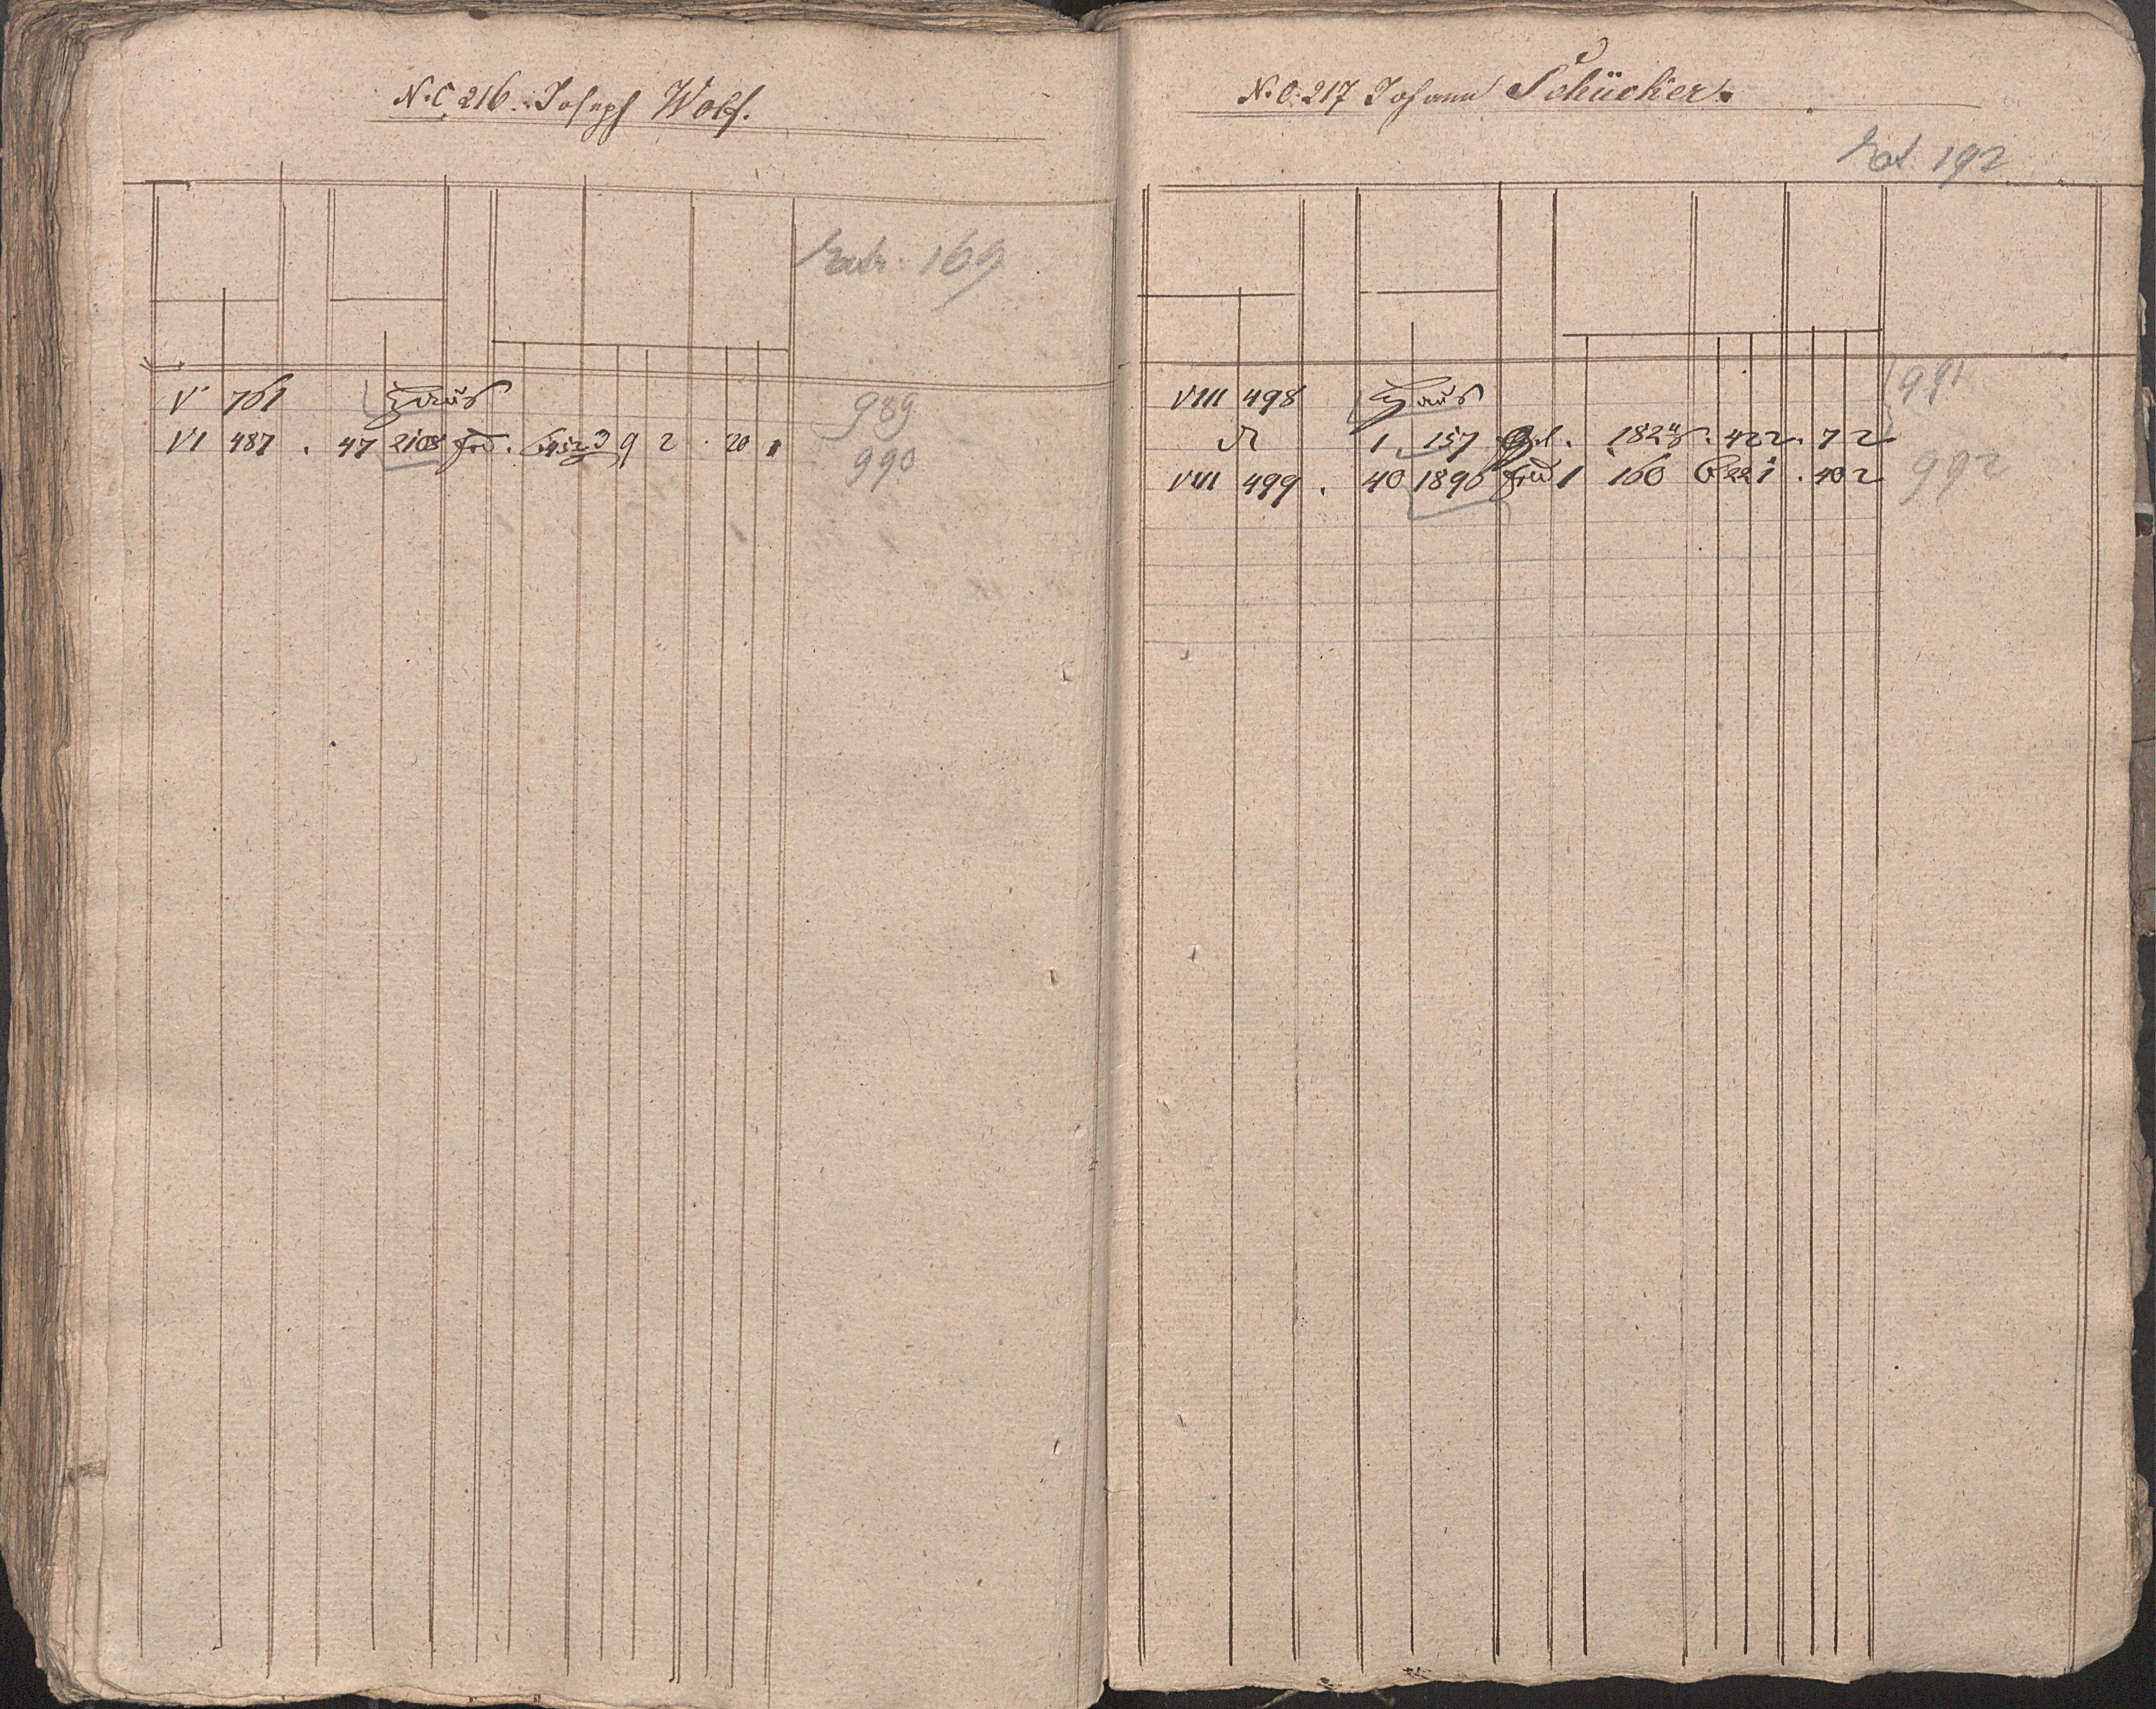 N. C. 216. Joseph Wolf.
169
V 761 Haus 989
VI 487 . 47 2108 . 9 2 . 20 990
N. C. 217 Johann Schücker.
192
VIII 498 Haus 991
1 157 . 182 . 42 2 . 7 2
VIII 499 . 40 1896 1 160 . 40 2 992